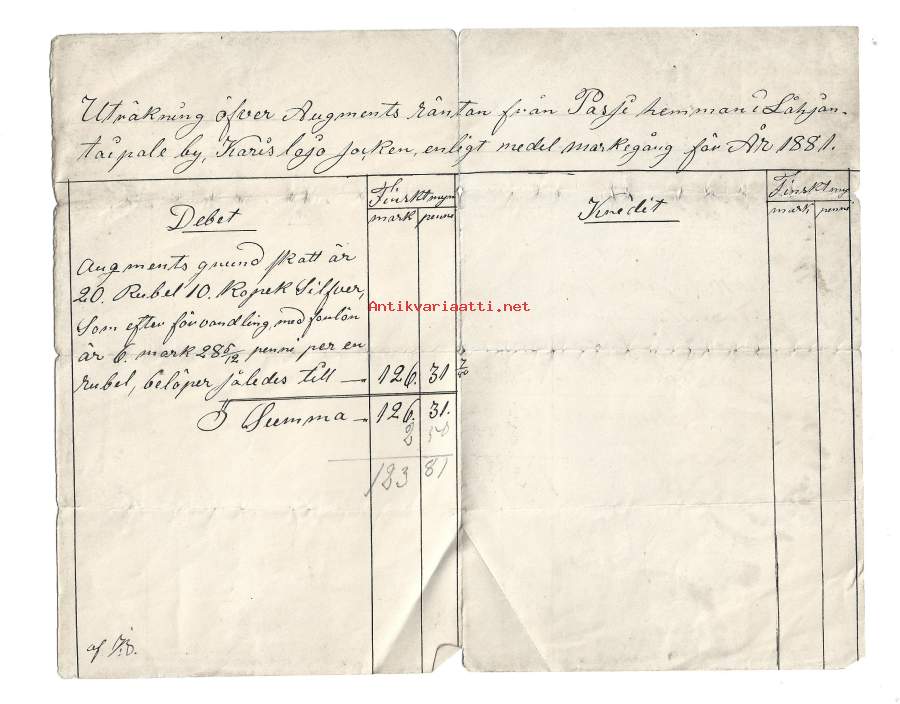 Uträkning öfver Augments räntan från Passi hemman i Lohjan-
taipale by, Karislojo socken, enligt medel markegång för År 1881.
Debet
Finskt mynt
mark penni
Kredit
Finskt myn
mark penni
Augments grund skatt är
20. Rubel 10. Kopek Silfver,
Som efter förvandling med forlön
är 6. mark 28 5/12 penni per en
rubel, belöper således till — 126. 31
Antikvariaatti.net
S Summa — 126. 31.
2 50
123 81
af